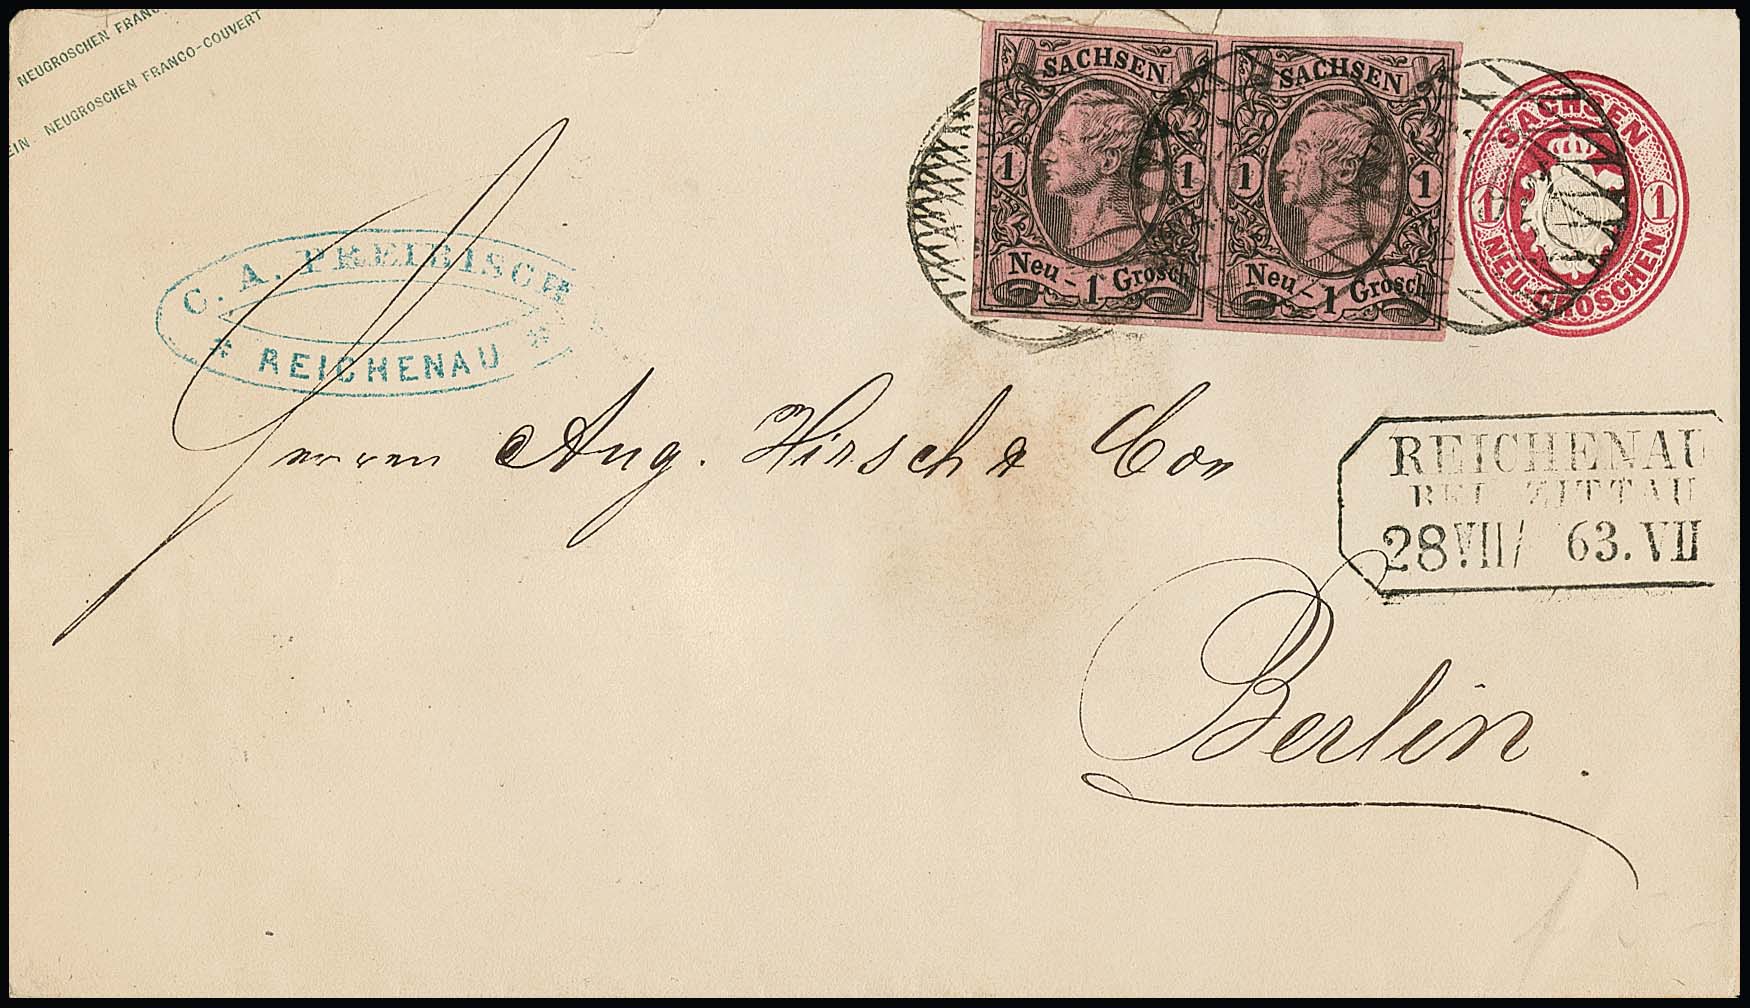 NEUGROSCHEN FRANC
EIN NEUGROSCHEN FRANCO-COUVERT
SACHSEN
1 1
Neu - 1 Grosch
SACHSEN
1 1
Neu - 1 Grosch
SACHSEN
1 1
NEU-GROSCHEN
C. A. PREIBISCH
* REICHENAU *
REICHENAU
BEI ZITTAU
28 VII / 63. VII
Herren Aug. Hirsch & Con
Berlin.